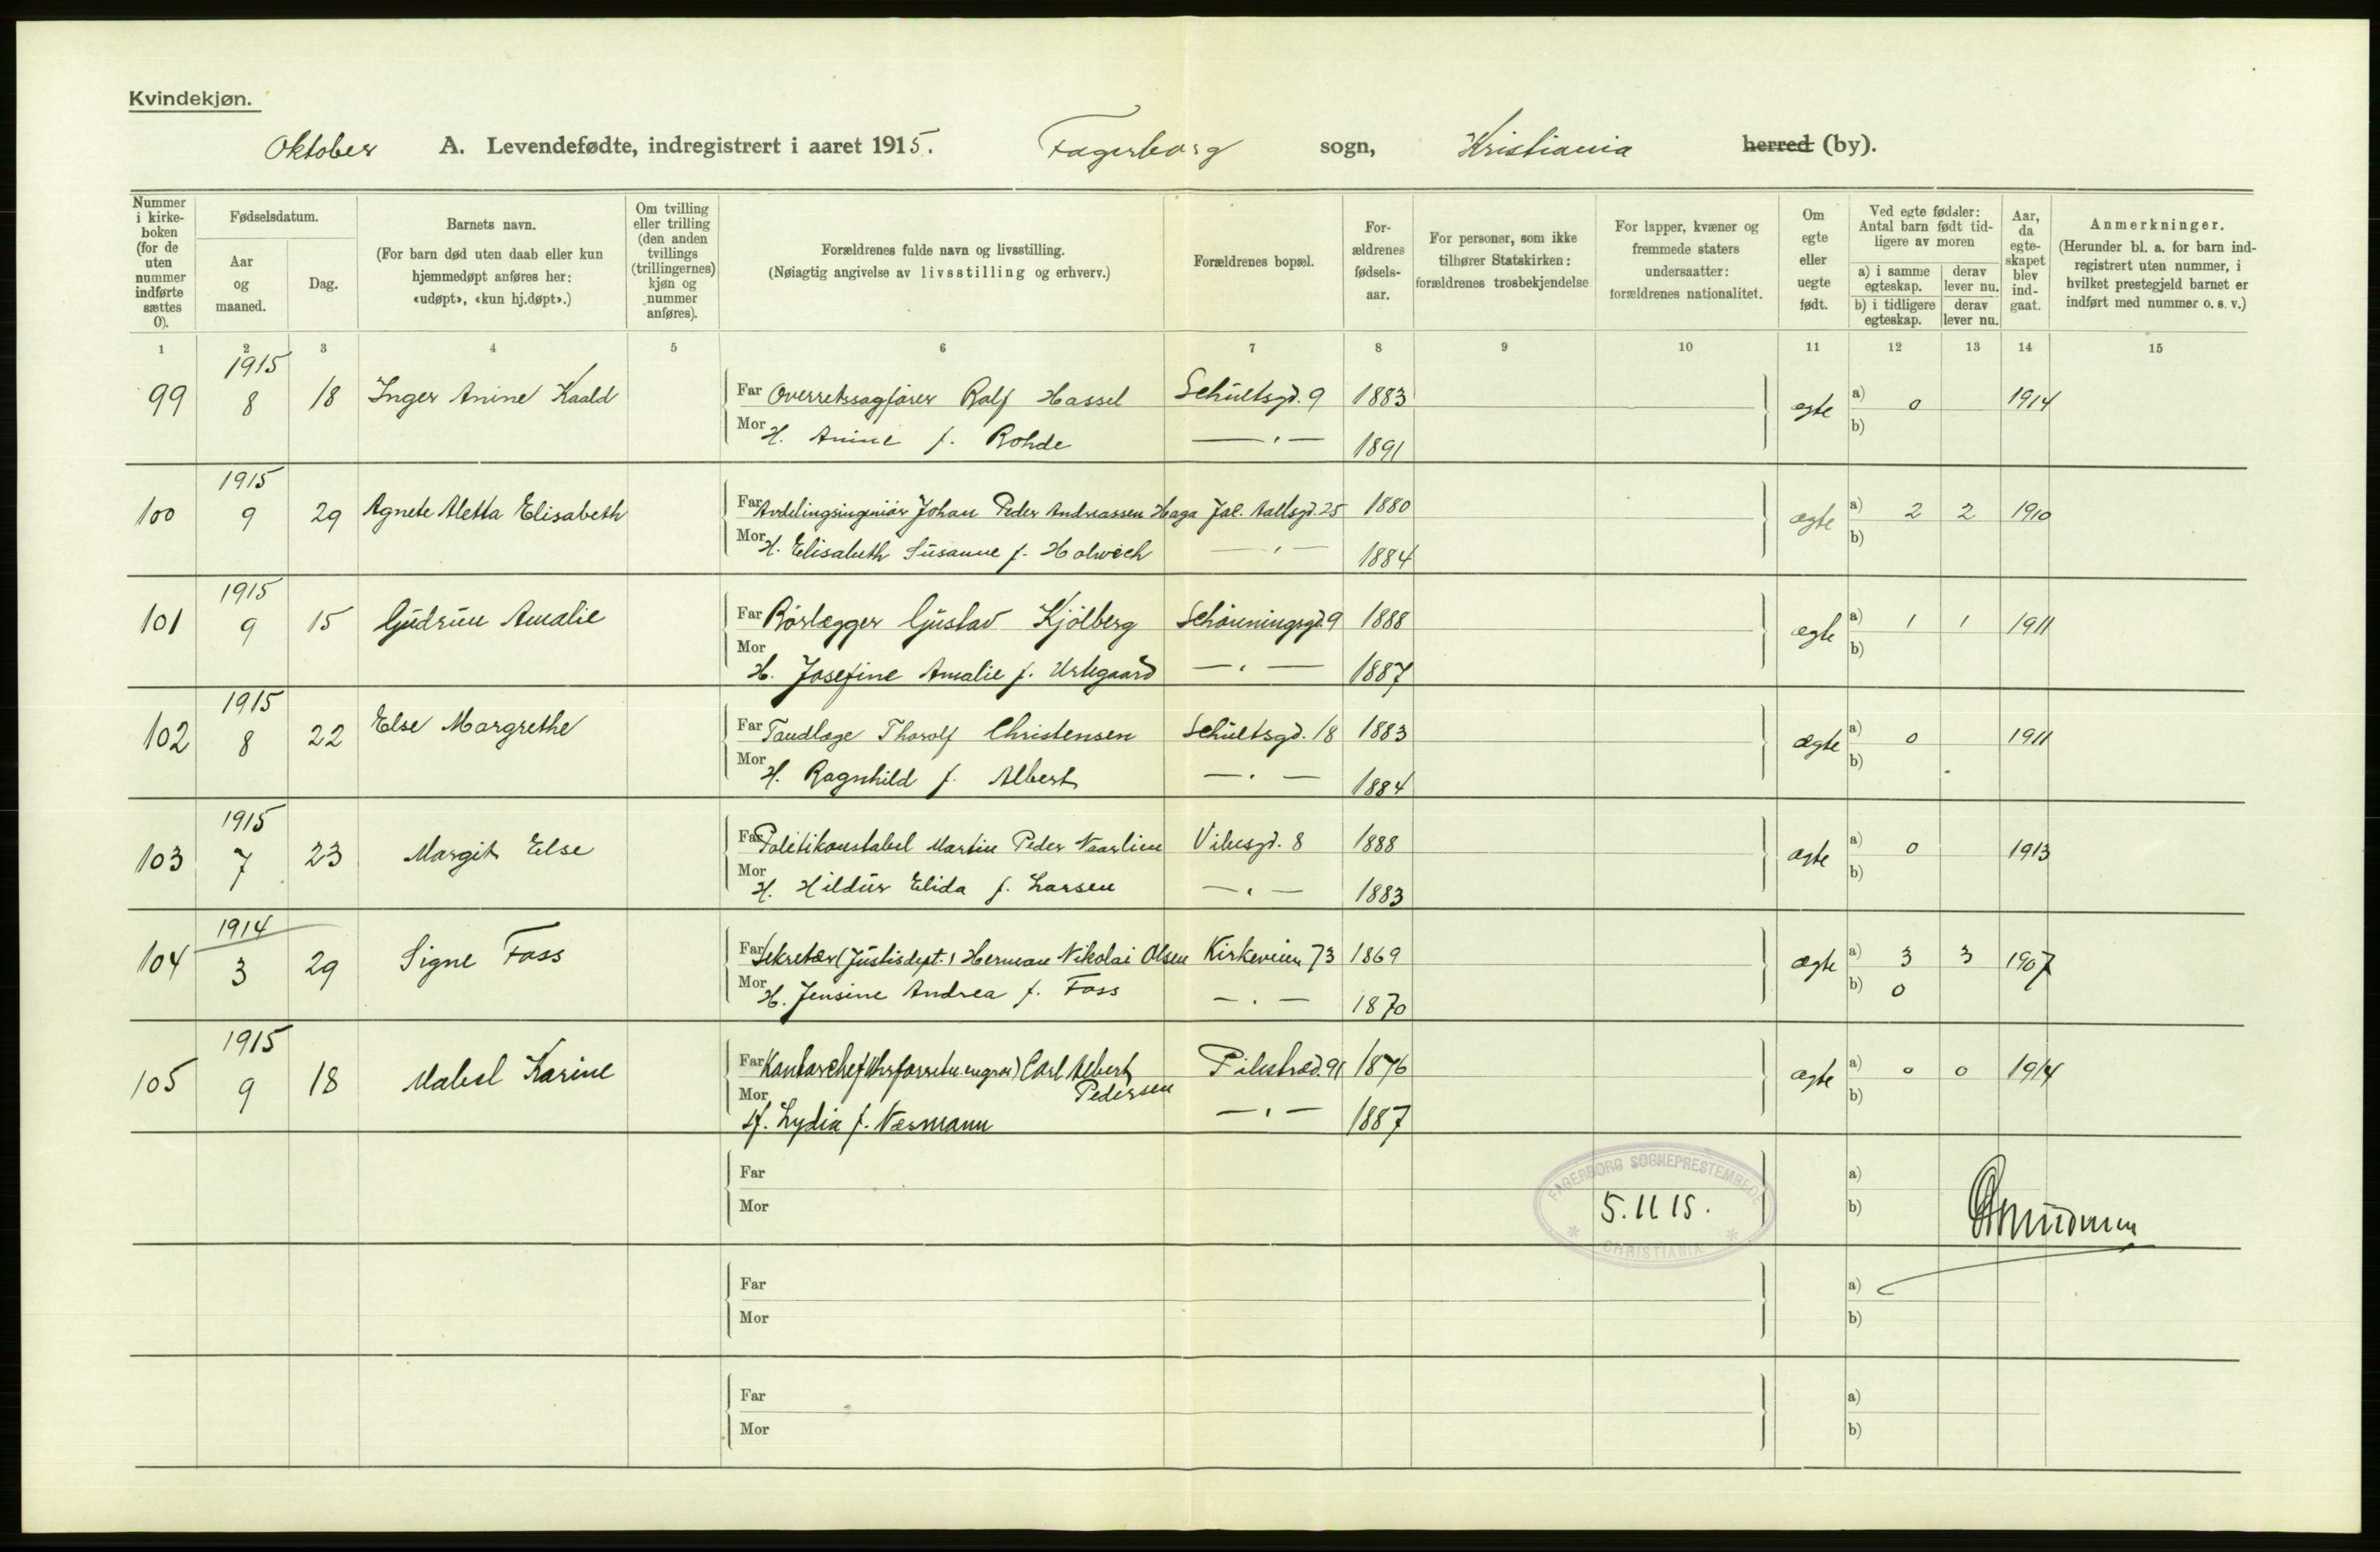 Kvindekjøn.
Oktober A. Levendefødte, indregistrert i aaret 1915. Fagerborg sogn, Kristiania herred (by).
Nummer i kirke-boken (for de uten nummer indførte sættes 0).
Fødselsdatum.
Aar og maaned.
Dag.
Barnets navn.
(For barn død uten daab eller kun hjemmedøpt anføres her: «udøpt», «kun hj.døpt».)
Om tvilling eller trilling (den anden tvillings (trillingernes) kjøn og nummer anføres).
Forældrenes fulde navn og livsstilling.
(Nøiagtig angivelse av livsstilling og erhverv.)
Forældrenes bopæl.
For-ældrenes fødsels-aar.
For personer, som ikke tilhører Statskirken: forældrenes trosbekjendelse
For lapper, kvæner og fremmede staters undersaatter: forældrenes nationalitet.
Om egte eller uegte født.
Ved egte fødsler: Antal barn født tid-ligere av moren
a) i samme egteskap.
derav lever nu.
b) i tidligere egteskap.
derav lever nu.
Aar, da egte-skapet blev ind-gaat.
Anmerkninger.
(Herunder bl. a. for barn ind-registrert uten nummer, i hvilket prestegjeld barnet er indført med nummer o. s. v.)
1 2 3 4 5 6 7 8 9 10 11 12 13 14 15
1915
99 8 18 Inger Anine Kaald Far Overretssagfører Rolf Hassel Schultsgd. 9 1883 egte a) 0 1914
Mor H. Anine f. Rohde — " — 1891 b)
1915
100 9 29 Agnete Aletta Elisabeth Far Avdelingsingeniør Johan Peder Andreassen Haga Jac. Aallsgd. 25 1880 ægte a) 2 2 1910
Mor H. Elisabeth Susanne f. Holweck — " — 1884 b)
1915
101 9 15 Gudrun Amalie Far Rørlægger Gustav Kjølberg Schønningsgd. 9 1888 ægte a) 1 1 1911
Mor H. Josefine Amalie f. Urtegaard — " — 1887 b)
1915
102 8 22 Else Margrethe Far Tandlæge Thorolf Christensen Schultsgd. 18 1883 ægte a) 0 1911
Mor H. Ragnhild f. Albert — " — 1884 b)
1915
103 7 23 Margit Else Far Politikonstabel Martin Peder Naarlien Vibesgd. 8 1888 ægte a) 0 1913
Mor H. Hildur Elida f. Larsen — " — 1883 b)
1914
104 3 29 Signe Foss Far Sekretær (Justisdept.) Herman Nikolai Olsen Kirkeveien 73 1869 ægte a) 3 3 1907
Mor H. Jensine Andrea f. Foss — " — 1870 b) 0
1915
105 9 18 Mabel Karine Far Kontorchef Carl Albert Pedersen Pilestræd. 91 1876 ægte a) 0 0 1914
Mor H. Lydia f. Næsmann — " — 1887 b)
Far a)
FAGERBORG SOGNEPRESTEMBEDE
5.11 15.
CHRISTIANIA
Mor b)
Far a)
Mor b)
Far a)
Mor b)